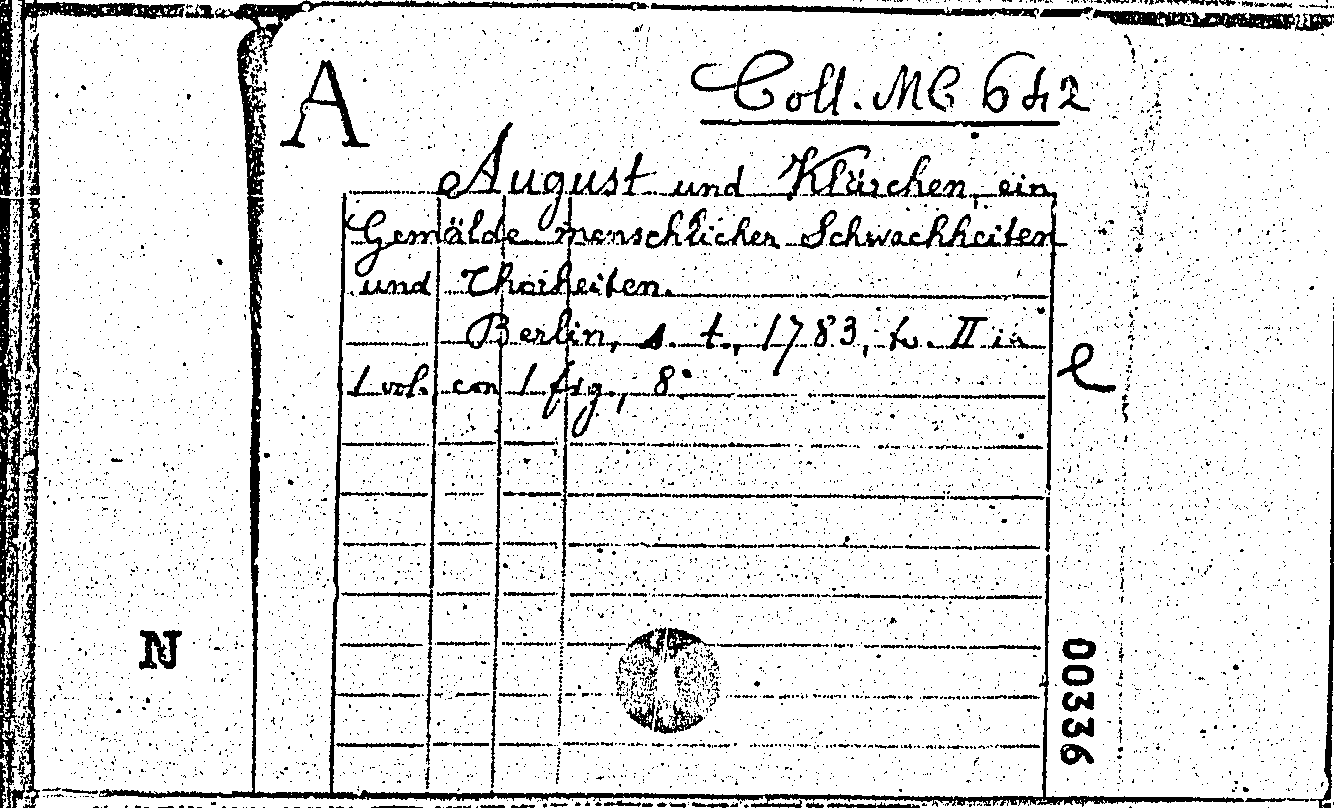 A
Coll. MC 642
August und Klärchen, ein
Gemälde menschlicher Schwachheiten
und Thorheiten.
Berlin, s. t., 1783, to. II in
1 vol. con 1 fig., 8°
l
N
00336